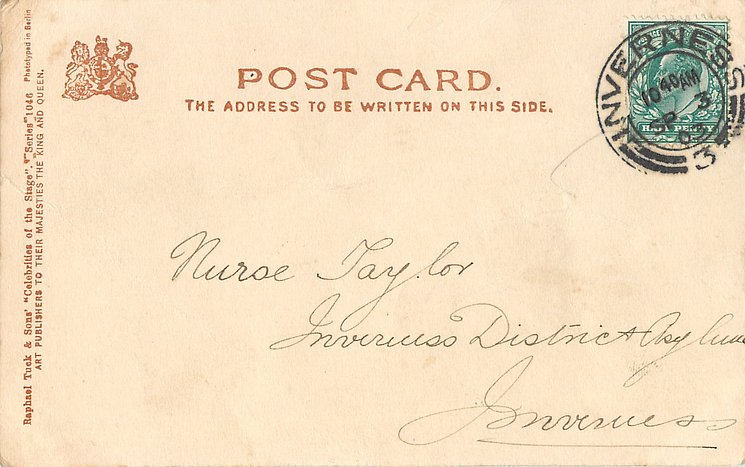 POST CARD.
THE ADDRESS TO BE WRITTEN ON THIS SIDE.
Raphael Tuck & Sons' "Celebrities of the Stage". "Series" 1046 Phototyped in Berlin
ART PUBLISHERS TO THEIR MAJESTIES THE KING AND QUEEN.
INVERNESS
10 40 AM
SP 3
34
HALF PENNY
Nurse Taylor
Inverness District Asylum
Inverness